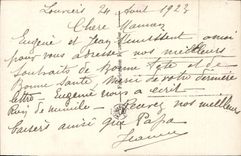 Louviers 24 Aout 1923
Chere Maman
Eugène et Jean unissent a moi
pour vous adresser nos meilleurs
Souhaits de Bonne Fete et de
Bonne Sante Merci de votre derniere
lettre - Eugene nous a ecrit
Rien de nouveau - Recevez nos meilleurs
baisers ainsi que Papa
Jeanne